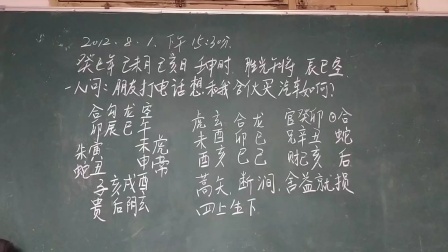 2012.8.1.下午15:30分.
癸巳年己未月己亥日 壬申时 胜光利将 辰巳空
一人问:朋友打电话想和我合伙买汽车如何?
合勾龙空
卯辰巳午
朱寅 未虎
蛇丑 申常
子亥戌酉
贵后阴玄
虎玄合龙
未酉卯巳
酉亥巳己
官癸卯⊙合
兄辛丑 蛇
财己亥 后
蒿矢,断涧,含益就损
四上生下